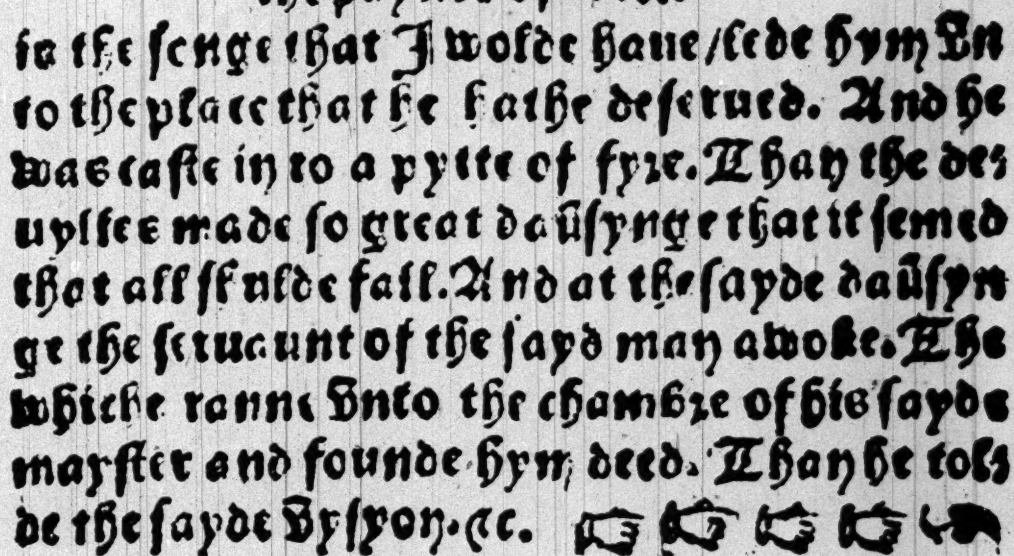 in the senge that I wolde haue / lede hym Vn
to the place that he hathe deserued. And he
was caste in to a pytte of fyre. Than the de⸗
uylles made so great daūsynge that it semed
that all shulde fall. And at the sayde daūsyn
ge the seruaunt of the sayd man awoke. The
whiche ranne Vnto the chambre of his sayde
mayster and founde hym deed. Than he tol⸗
de the sayde Vysyon. &c. ☞ ☞ ☞ ☞